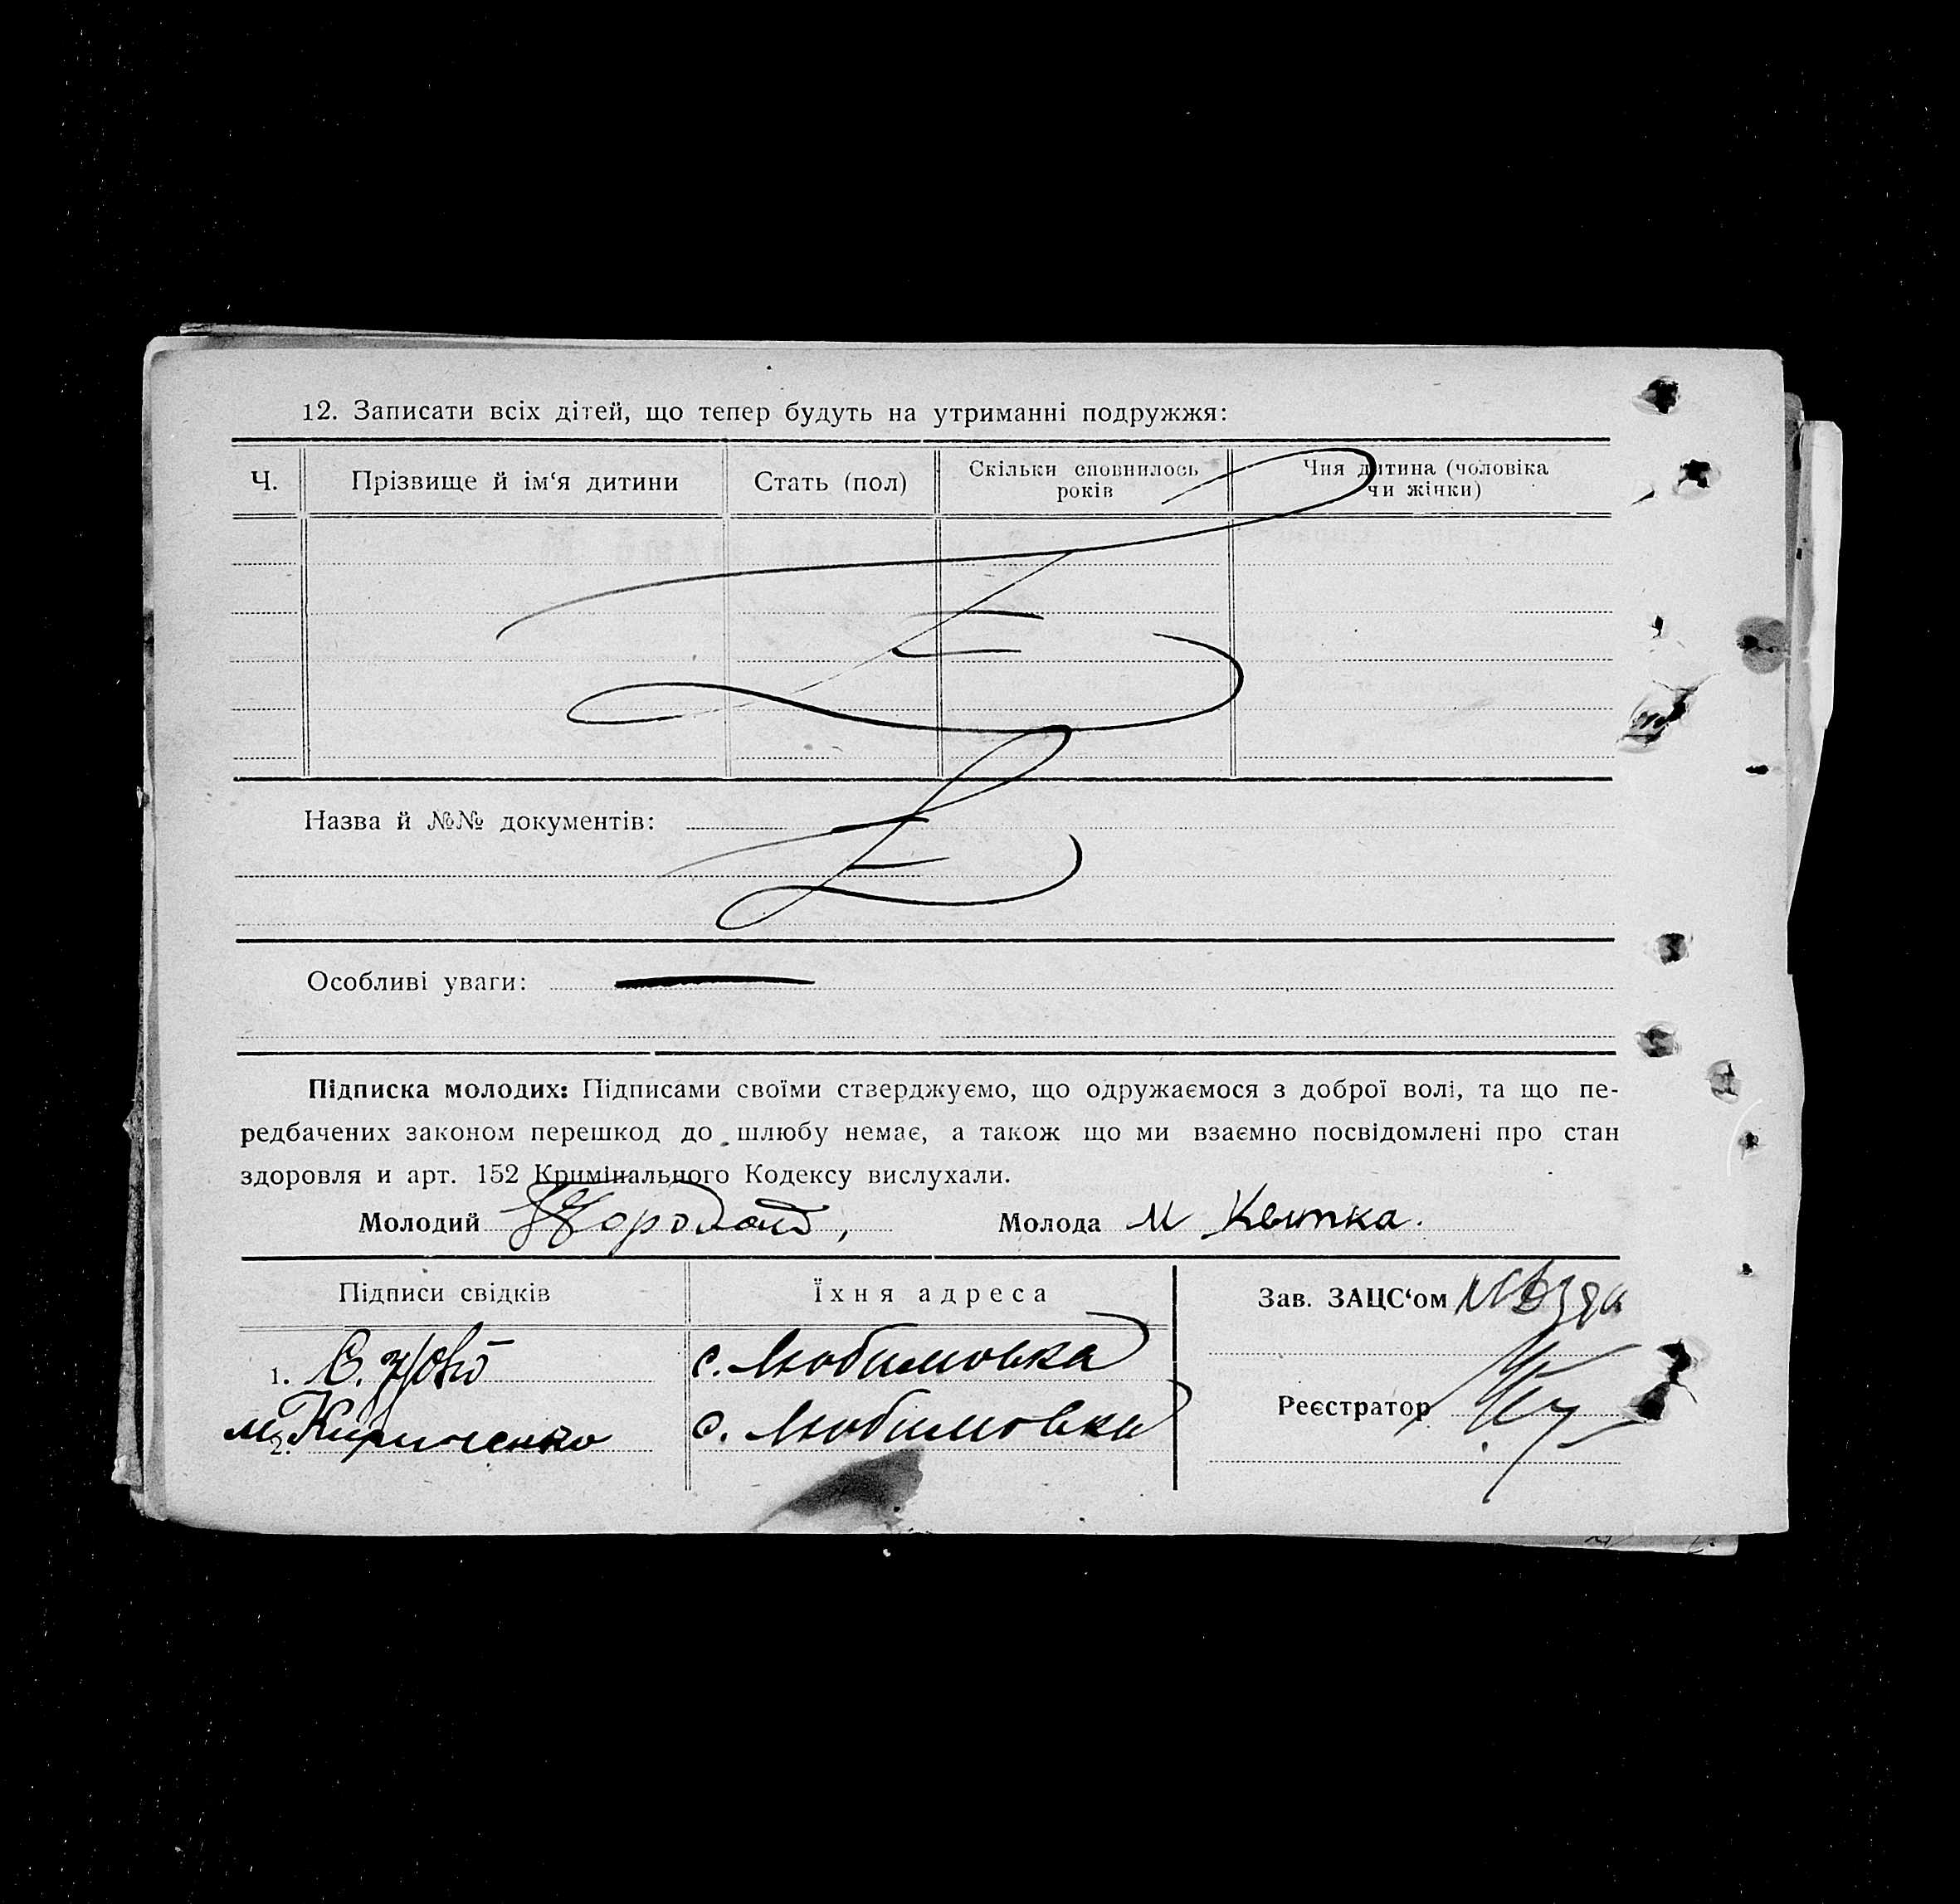 12. Записати всіх дітей, що тепер будуть на утриманні подружжя:
Ч. Прізвище й ім‘я дитини Стать (пол) Скільки сповнилось років Чия дитина (чоловіка чи жінки)
Назва й №№ документів:
Особливі уваги:
Підписка молодих: Підписами своїми стверджуємо, що одружаємося з доброї волі, та що пе-
редбачених законом перешкод до шлюбу немає, а також що ми взаємно посвідомлені про стан
здоровля и арт. 152 Кримінального Кодексу вислухали.
Молодий Молода М Квитка.
Підписи свідків Їхня адреса Зав. ЗАЦС‘ом
1. с. Любимовка
Реєстратор
2. М Кириченко с. Любимовка